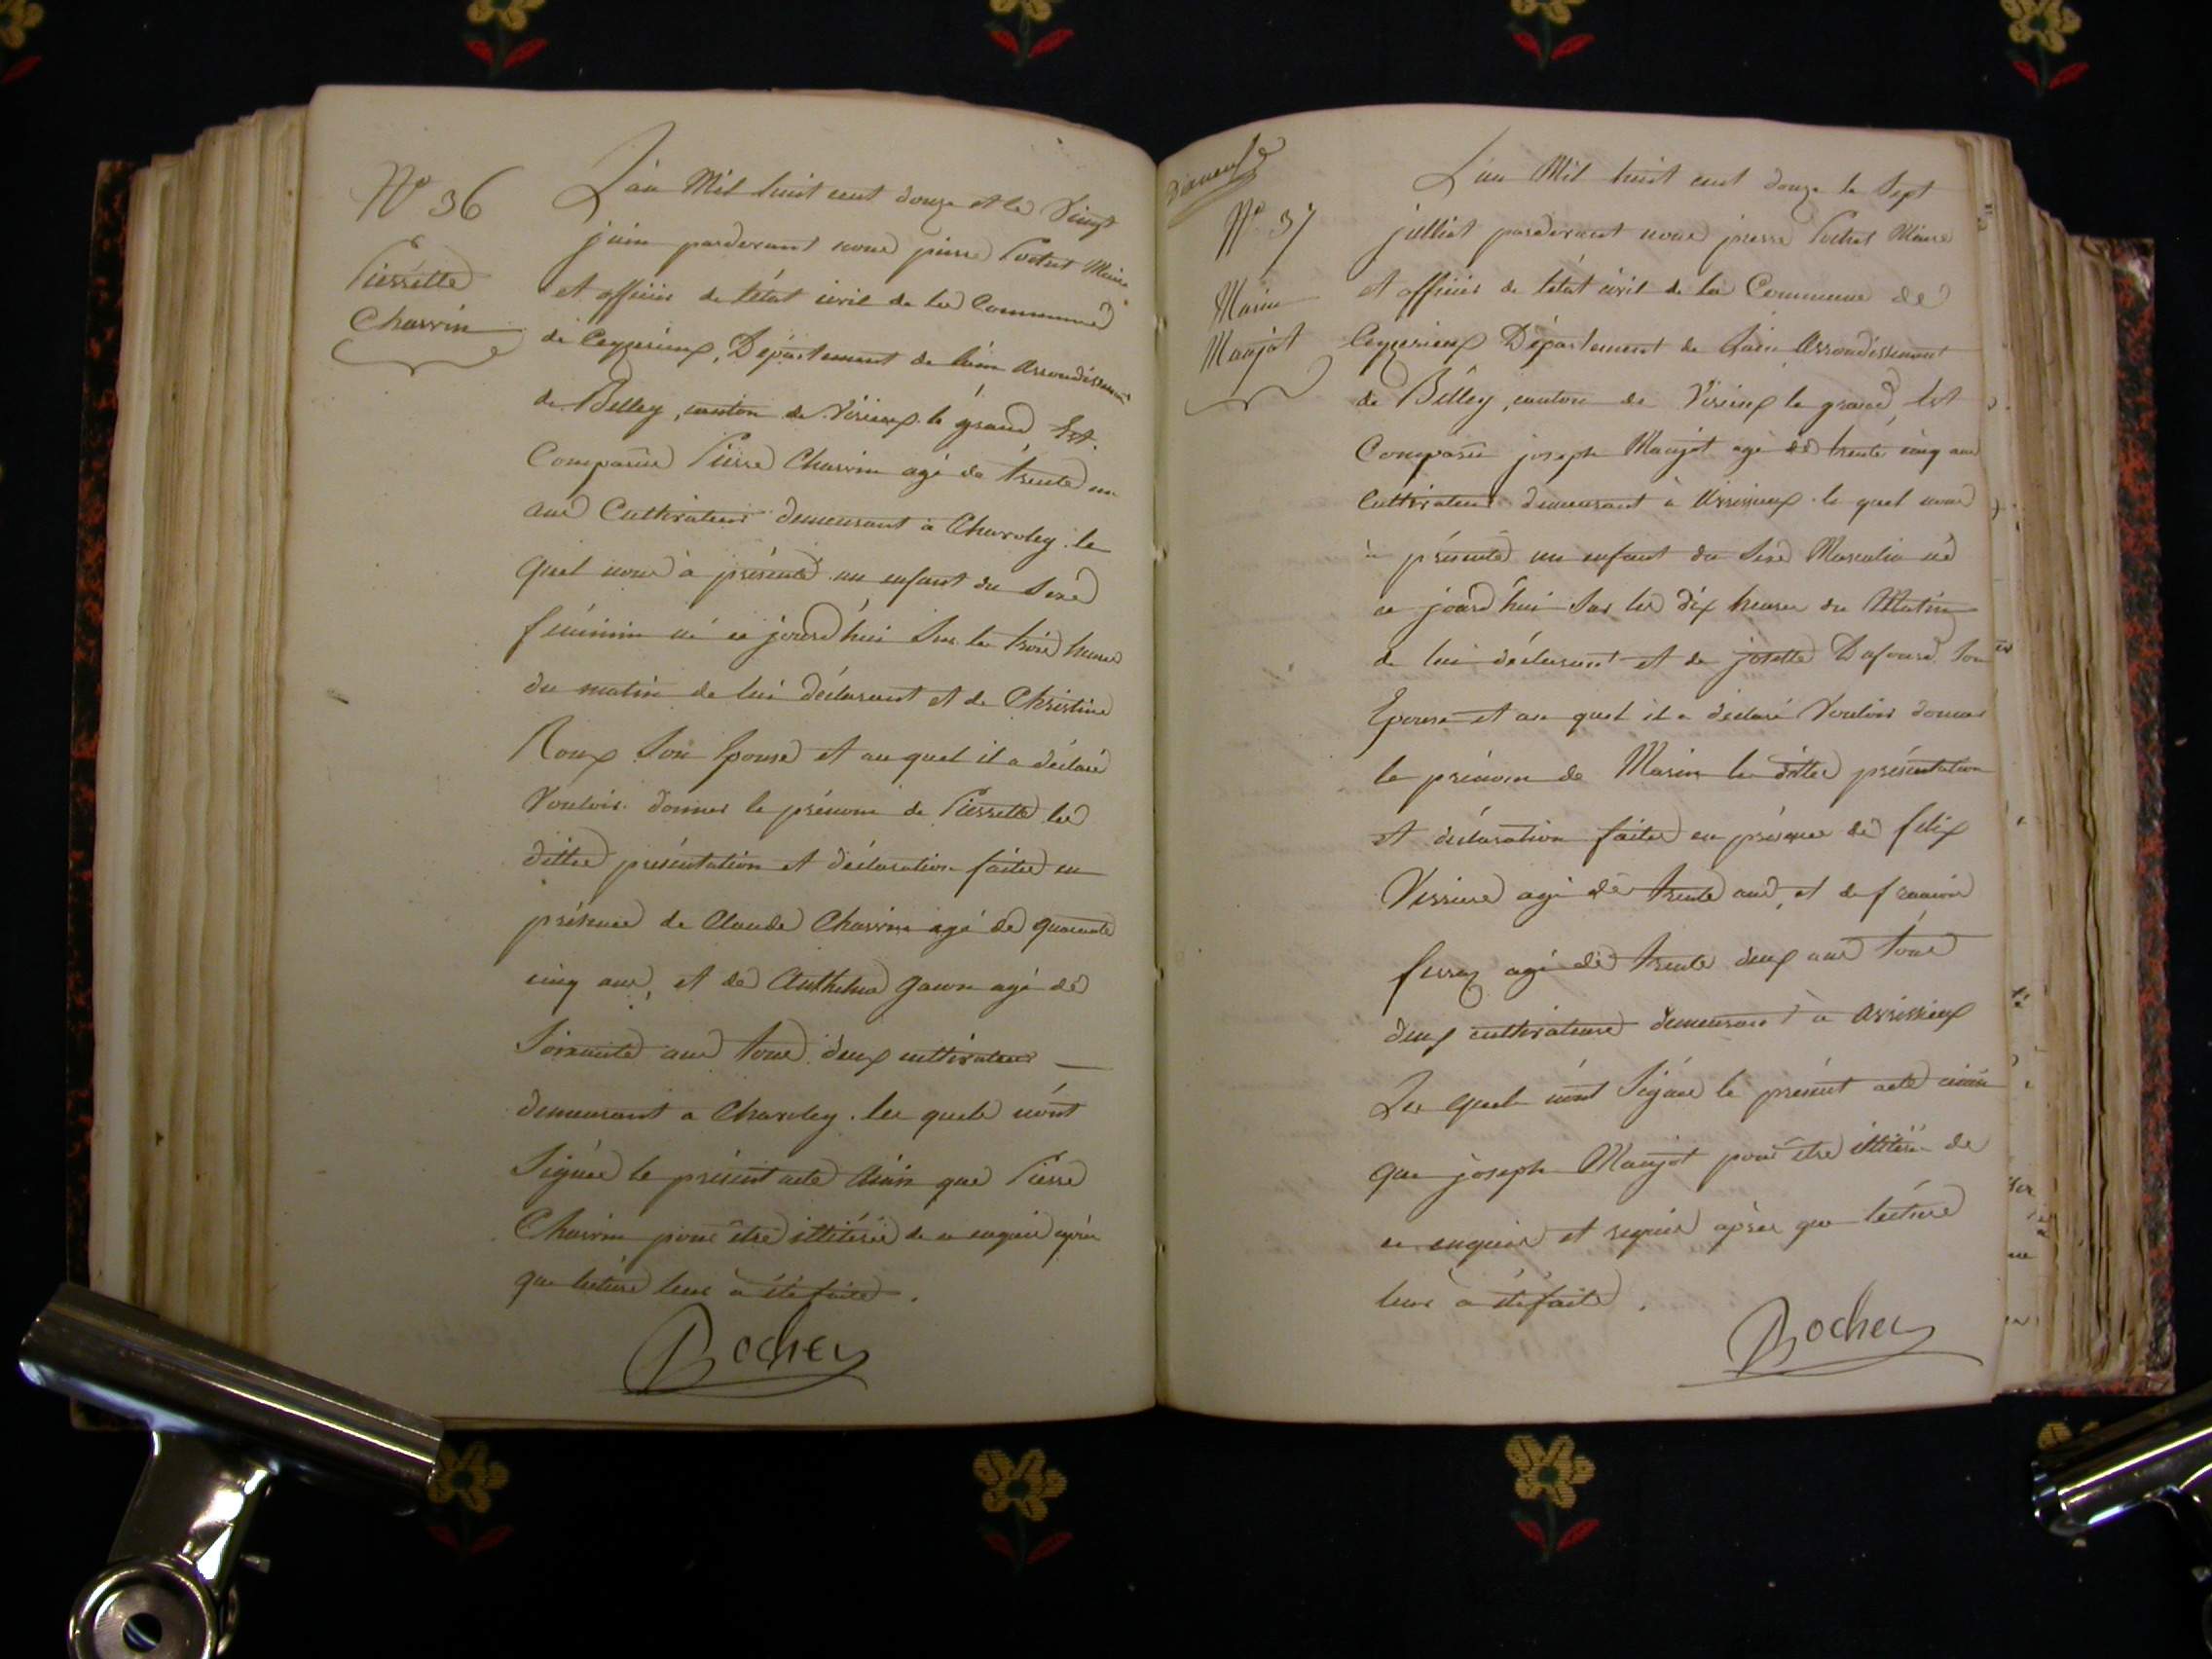 N° 36
Pierrette
Charvin
L'an Mil huit cent douze et le Vingt
juin pardevant nous pierre Rochet Maire
et officier de l'état civil de la Commune
de Ceyzerieux, Département de l'ain Arrondissement
de Belley, canton de Virieux le grand Est
Comparu Pierre Charvin agé de trente un
ans Cultivateur demeurant à Charoley le
quel nous à présenté un enfant du Sexe
féminin né ce jourd'hui Sur les trois heures
du matin de lui déclarant et de Christine
Roux Son Epouse et au quel il a déclaré
Vouloir donner le prénom de Pierrette les
dittes présentation et déclaration faites en
présence de Claude Charvin agé de quarante
cinq ans, et de Anthelme agé de
Soixante ans tous deux cultivateurs
demeurant a Charoley les quels n'ont
Signés le présent acte Ainsi que Pierre
Charvin pour être illitérés de ce enquis après
que lecture leur à été faite.
Rochet
N° 37
Marin
Maujot
L'an Mil huit cent douze le Sept
julliet pardevant nous pierre Rochet Maire
et officier de l'état civil de la Commune de
Ceyzerieux Département de l'ain Arrondissement
de Belley, canton de Virieux le grand, Est
Comparu joseph Maujot agé de trente cinq ans
Cultivateur demeurant à Avrissieux le quel nous
à présenté un enfant du Sexe Masculin né
ce jourd'hui Sur les dix heures du Matin
de lui déclarant et de josette Dufour Son
Epouse et au quel il a déclaré Vouloir donner
le prénom de Marin les dittes présentation
et déclaration faites en présence de felix
agé de trente ans, et de francois
ferraz agé de trente deux ans tous
deux cultivateurs demeurant à avrissieux
Les quels n'ont Signés le présent acte ainsi
que joseph Maujot pour être illitérés de
ce enquis et requis après que lecture
leur à été faite.
Rochet